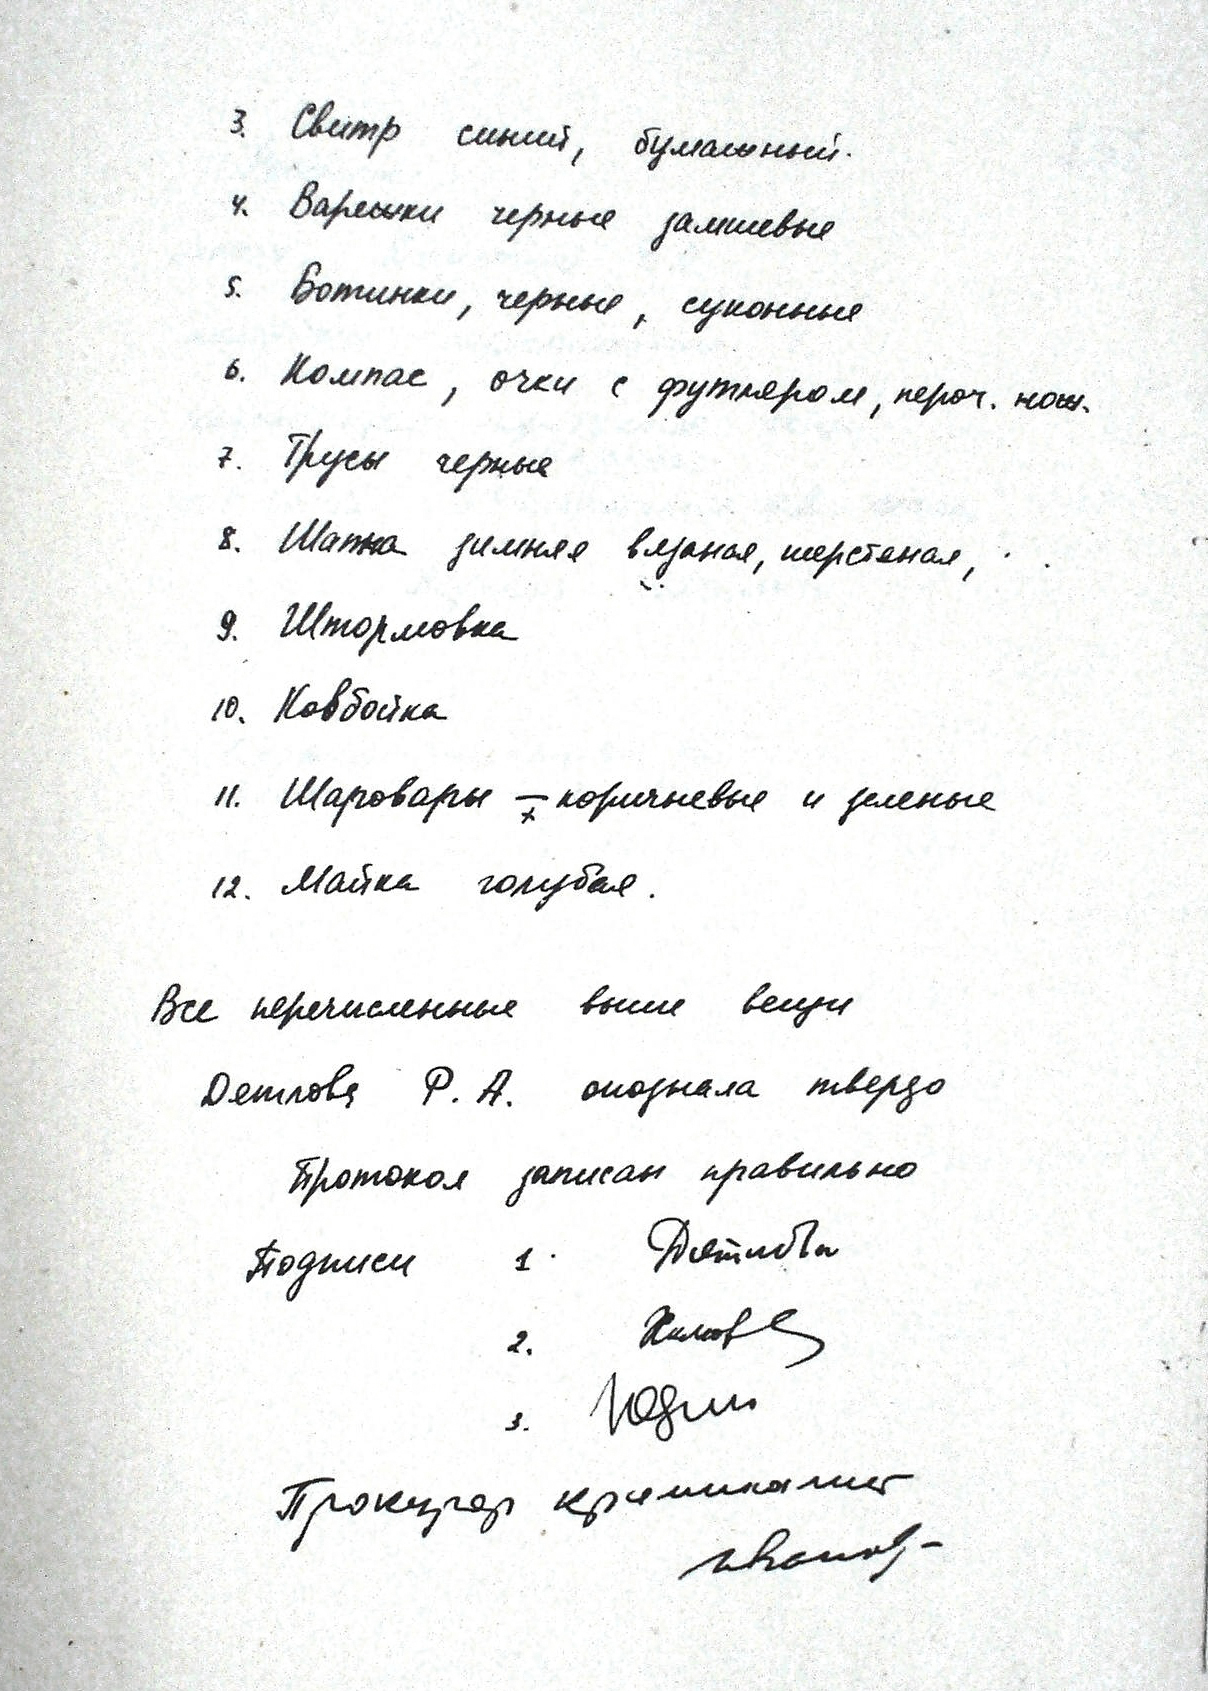 3. Свитр синий, бумажный.
4. Варежки черные замшевые
5. Ботинки, черные, суконные
6. Компас, очки с футляром, пероч. нож.
7. Трусы черные
8. Шапка зимняя вязаная, шерстеная,
9. Штормовка
10. Ковбойка
11. Шаровары – коричневые и зеленые
12. Майка голубая.
Все перечисленные выше вещи
Дятлова Р. А. опознала твердо
Протокол записан правильно
Подписи 1. Дятлова
2.
3. Юдин
Прокурор криминалист
Иванов